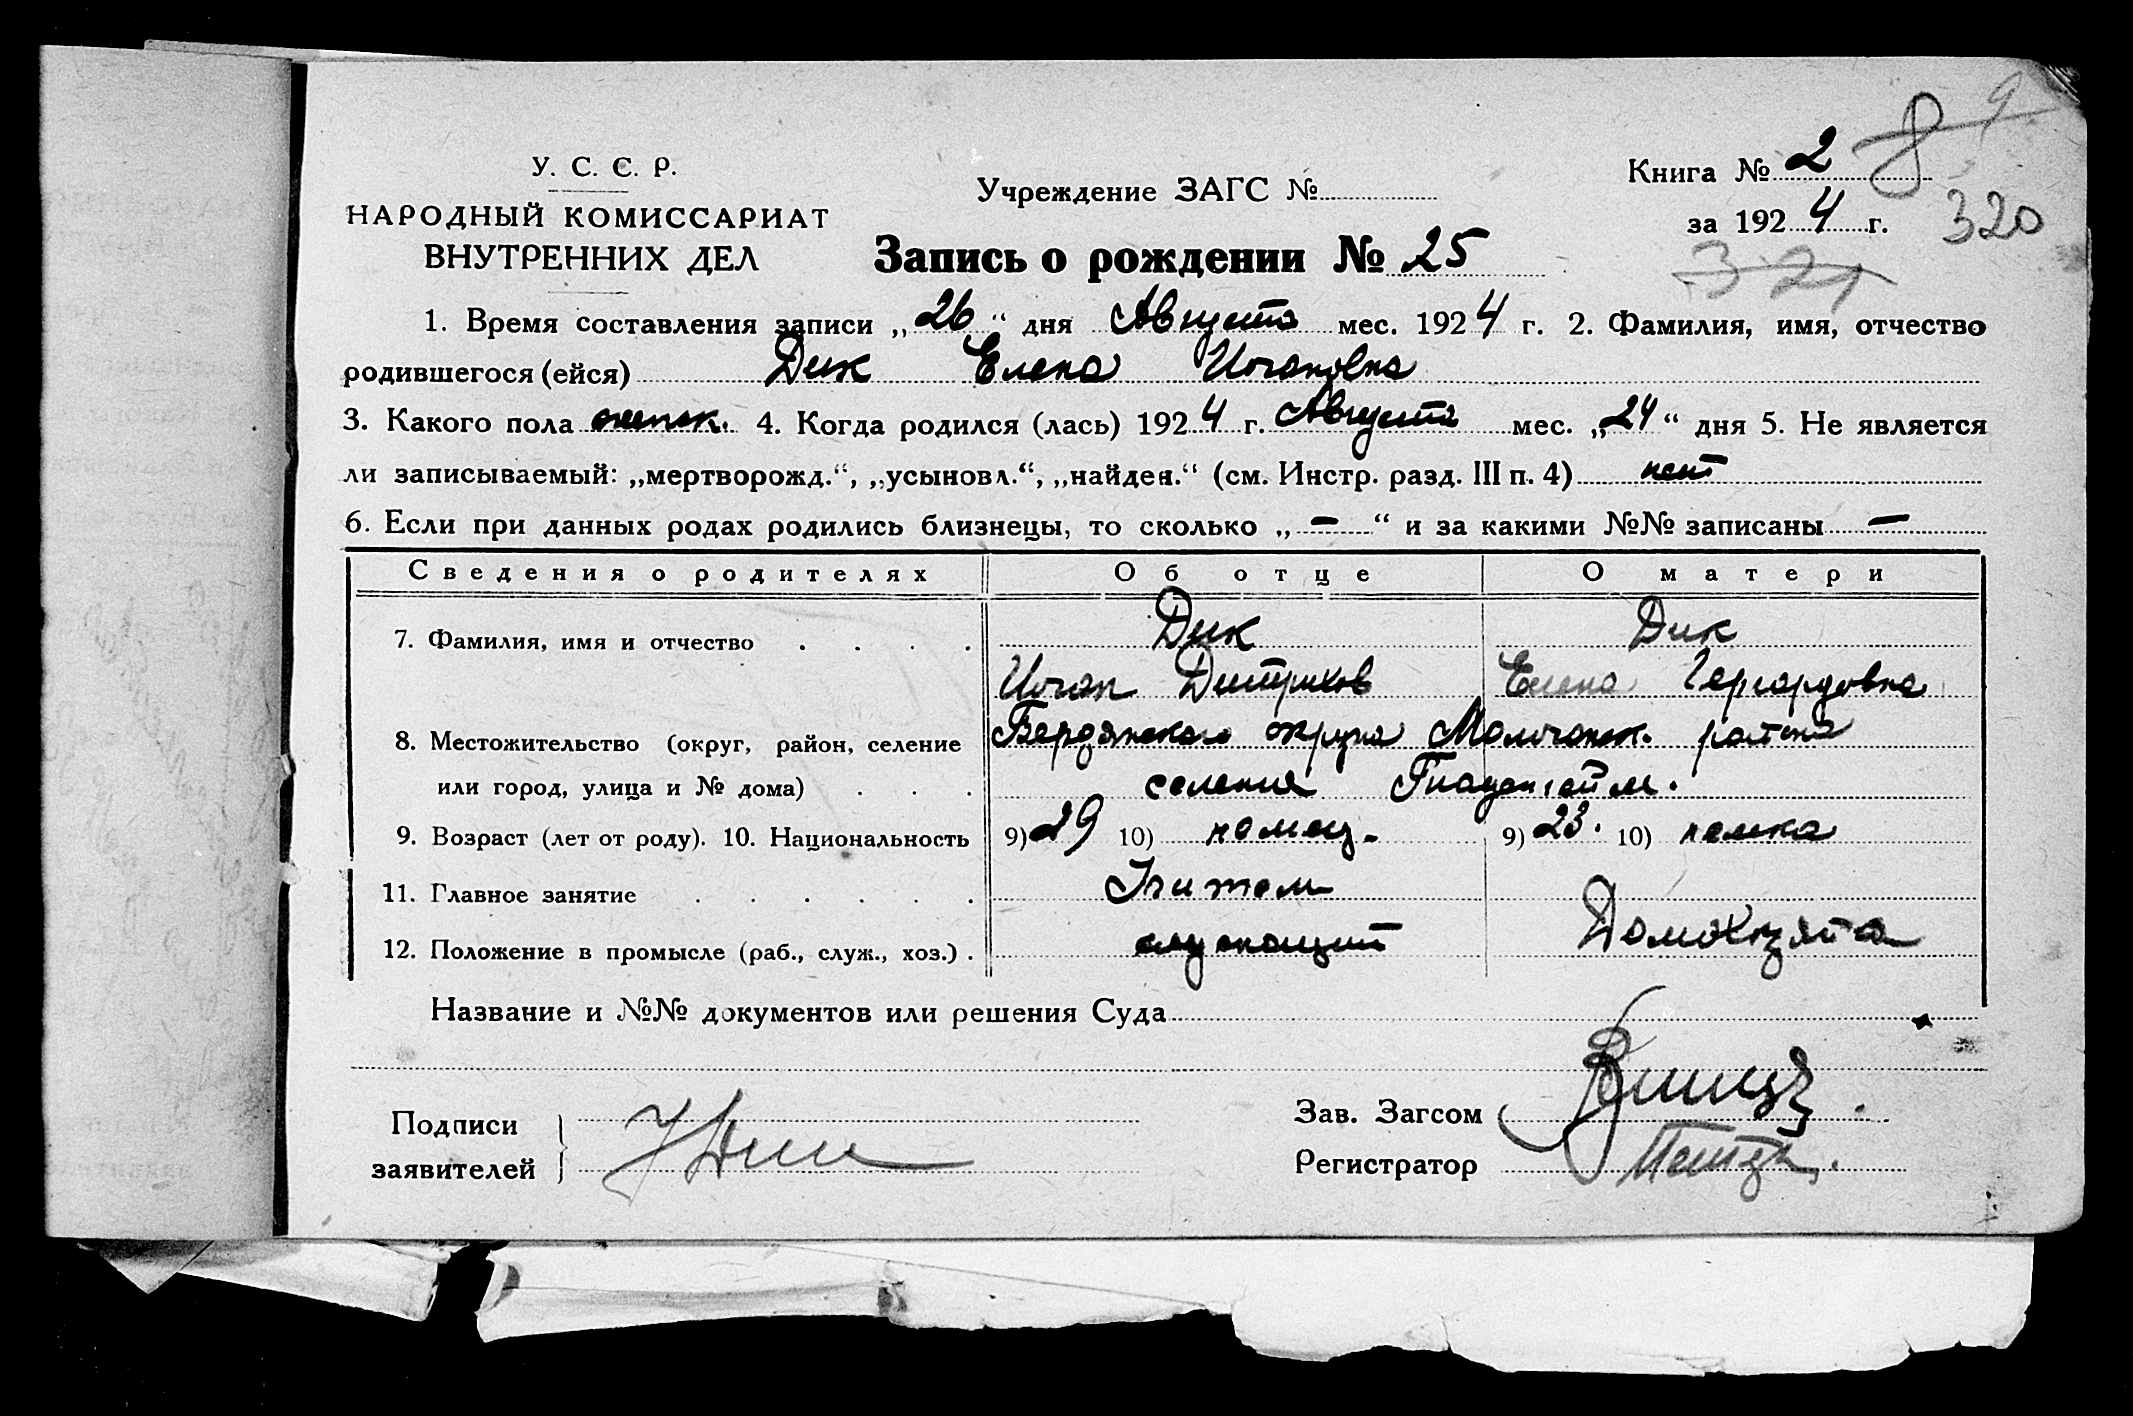 9
У. С. Є. Р.
НАРОДНЫЙ КОМИССАРИАТ
ВНУТРЕННИХ ДЕЛ
Учреждение ЗАГС №
Книга № 2 8
за 1924 г. 320
321
Запись о рождении № 25
1. Время составления записи „26“ дня Августа мес. 1924 г. 2. Фамилия, имя, отчество
родившегося (ейся) Дик Елена Иогановна
3. Какого пола женск. 4. Когда родился (лась) 1924 г. Августа мес. „24“ дня 5. Не является
ли записываемый: „мертворожд.“, „усыновл.“, „найден.“ (см. Инстр. разд. III п. 4) нет
6. Если при данных родах родились близнецы, то сколько „—“ и за какими №№ записаны —
Сведения о родителях Об отце О матери
7. Фамилия, имя и отчество . . . . Дик Дик
Иоган Дитрихов Елена Гергардовна
8. Местожительство (округ, район, селение Бердянского округа Молочанск. района
или город, улица и № дома) . . . селения Гнаденгейм.
9. Возраст (лет от роду). 10. Национальность 9) 29 10) немец. 9) 23. 10) немка
11. Главное занятие . . . . . . Учитель
12. Положение в промысле (раб., служ., хоз.) . служащий Домохозяйка
Название и №№ документов или решения Суда
Подписи
заявителей } Дик
Зав. Загсом
Регистратор